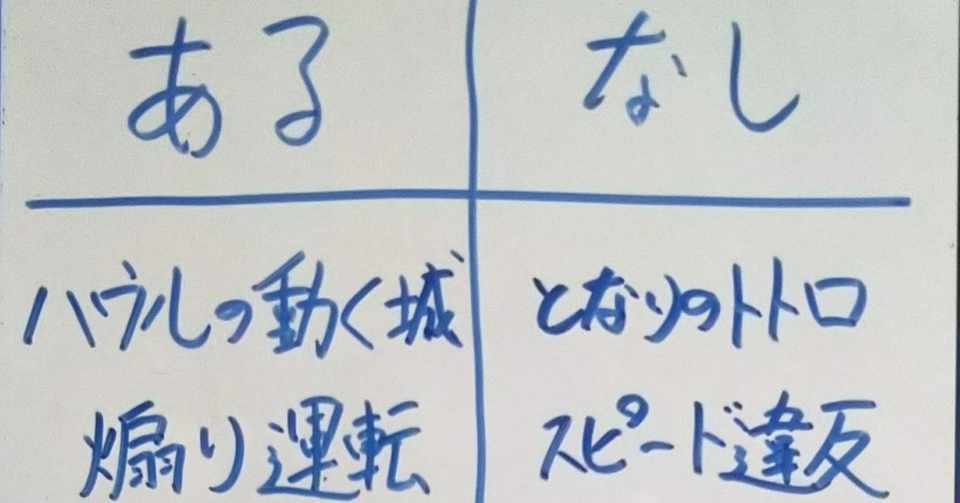 ある なし
ハウルの動く城 となりのトトロ
煽り運転 スピード違反